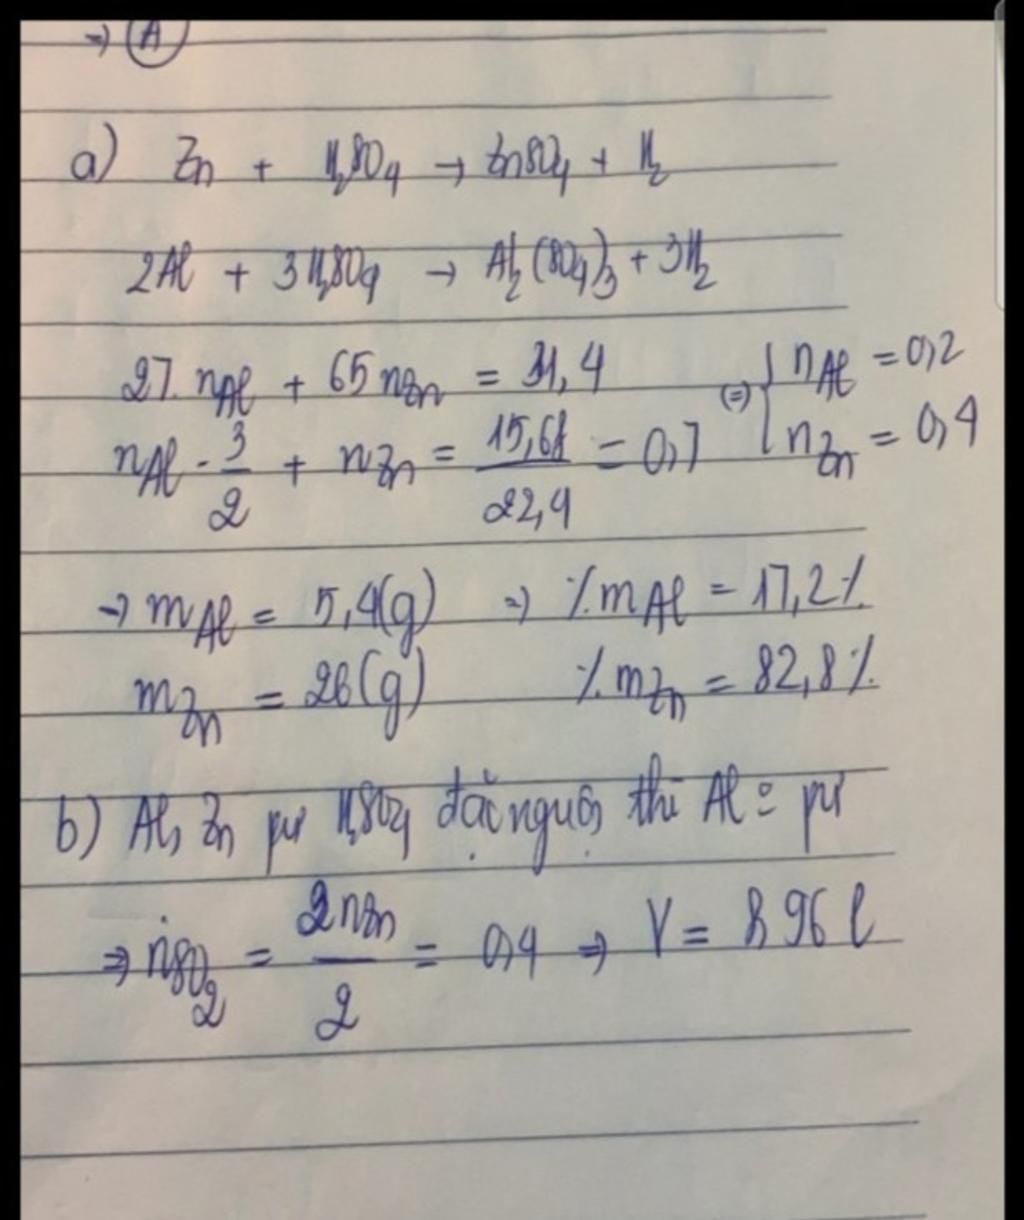 → (A)
a) Zn + H₂SO₄ → ZnSO₄ + H₂
2Al + 3H₂SO₄ → Al₂(SO₄)₃ + 3H₂
27. nAl + 65 nZn = 31,4 (=) { nAl = 0,2
nAl . 3/2 + nZn = 15,68/22,4 = 0,7 nZn = 0,4
→ mAl = 5,4(g) => %mAl = 17,2%
mZn = 26(g) %mZn = 82,8%
b) Al, Zn pư H₂SO₄ đặc nguội thì Al pư
=> nSO₂ = 2nZn/2 = 0,4 => V = 8,96 l